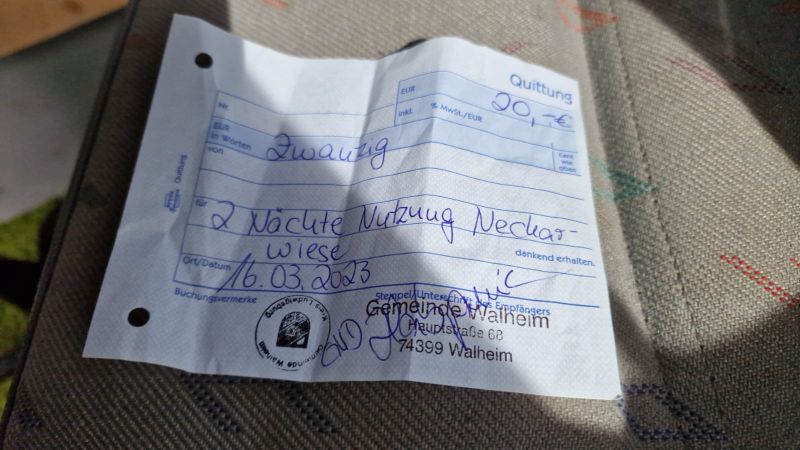 Quittung
EUR
20,-€
Nr.
inkl. % MwSt./EUR
EUR
in Worten
Zwanzig
Cent
wie
oben
von
für
2 Nächte Nutzung Neckar-
wiese
dankend erhalten.
Ort/Datum
16.03.2023
Buchungsvermerke
Stempel/Unterschrift des Empfängers
Gemeinde Walheim
Hauptstraße 68
74399 Walheim
Gemeinde Walheim
Kreis Ludwigsburg
Quittung